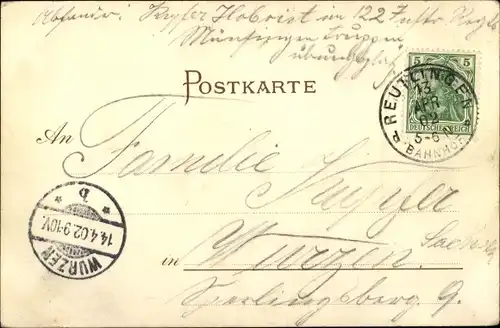 Absender: Kupfer Hoboist im 122 Inftr. Regt
Münsingen Truppen
übungsplatz
POSTKARTE
5 5
DEUTSCHES REICH
REUTLINGEN
13
APR
02
5-6 N
BAHNHOF
An Familie Kupfer
in Wurzen, Sachsen
Sperlingsberg 9.
WURZEN
14.4.02.9-10V.
* b *